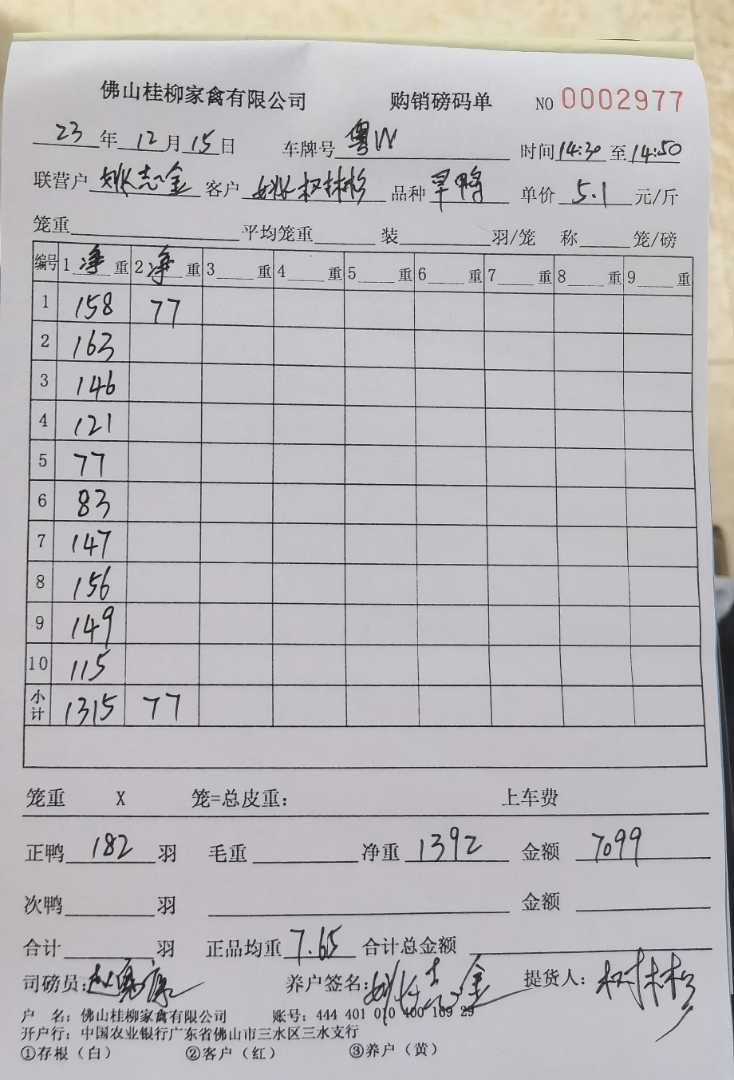 佛山桂柳家禽有限公司 购销磅码单 NO 0002977
23 年 12 月 15 日 车牌号 粤W 时间 14:30 至 14:50
联营户 姚志金 客户 品种 旱鸭 单价 5.1 元/斤
笼重 平均笼重 装 羽/笼 称 笼/磅
编号 1 净 重 2 净 重 3 重 4 重 5 重 6 重 7 重 8 重 9 重
1 158 77
2 163
3 146
4 121
5 77
6 83
7 147
8 156
9 149
10 115
小计 1315 77
笼重 X 笼=总皮重: 上车费
正鸭 182 羽 毛重 净重 1392 金额 7099
次鸭 羽 金额
合计 羽 正品均重 7.65 合计总金额
司磅员: 养户签名: 姚志金 提货人:
户 名: 佛山桂柳家禽有限公司 账号: 444 401 010 400 169 29
开户行: 中国农业银行广东省佛山市三水区三水支行
①存根（白） ②客户（红） ③养户（黄）